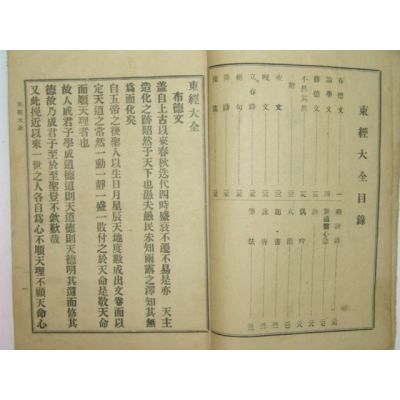 東經大全目錄
布德文 一
論學文
修德文
不然其然
祝文
呪文
立春詩
絶句
降詩
和訣詩
歎道儒心急
偶吟
八節
題書
詠宵
筆法
東經大全
布德文
盖自上古以來春秋迭代四時盛衰不遷不易是亦 天主
造化之跡昭然于天下也愚夫愚民未知雨露之澤知其無
爲而化矣
自五帝之後聖人以生日月星辰天地度數成出文卷而以
定天道之常然一動一靜一盛一敗付之於天命是敬天命
而順天理者也
故人成君子學成道德道則天道德則天德明其道而修其
德故乃成君子至於至聖豈不欽歎哉
又此挽近以來一世之人各自爲心不順天理不顧天命心
東經大全